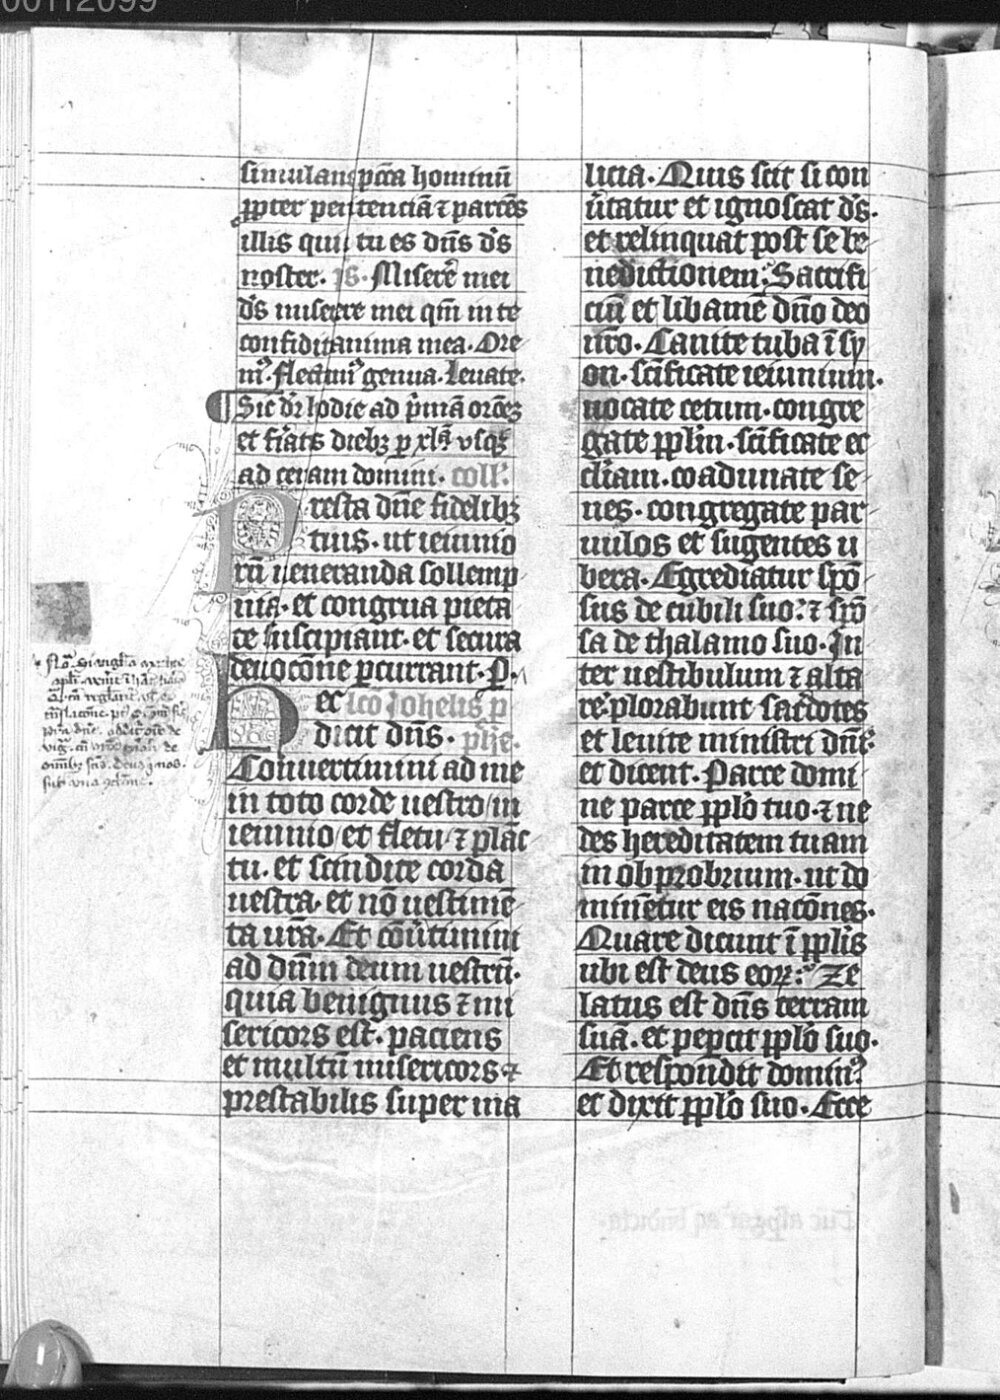 00112099
simulans pcca hominū
ꝓpter penitenciā ⁊ parcēs
illis quia tu es dn̄s ds̄
noster. ps. Miserē mei
ds̄ miserere mei qm̄ in te
confidit anima mea. Ore
m⁹. flectam⁹ genua. leuate.
Sic dr̄ hodie ad p̄mā orōeꝫ
et fr̄ats diebꝫ ꝑ xlā vsqꝫ
ad cenam domini. coll.
Presta dn̄e fidelibꝫ
tuis. ut ieiunio
rū ueneranda sollemp
nia. et congrua pieta
te suscipiant. et secura
deuocōne ꝑcurrant. P.
Hec lc̄o Johelis p
dicit dn̄s. ph̄e.
Conuertimini ad me
in toto corde uestro in
ieiunio et fletu ⁊ planc
tu. et scindite corda
uestra. et nō uestimē
ta ur̄a. Et cōūtimini
ad dn̄m deum uestrū.
quia benignus ⁊ mi
sericors est. paciens
et multū misericors ⁊
prestabilis super ma
licia. Quis scit si con
ūtatur et ignoscat ds̄.
et relinquat post se be
nedictionem. Sacrifi
ciū et libamē dn̄o deo
nr̄o. Canite tuba ī sy
on. sc̄ificate ieiunium.
uocate cetum. congre
gate ppl̄m. sc̄ificate ec
cl̄iam. coadunate se
nes. congregate par
uulos et sugentes u
bera. Egrediatur spō
sus de cubili suo. ⁊ spō
sa de thalamo suo. In
ter uestibulum ⁊ alta
re plorabunt sac̄dotes
et leuite ministri dn̄i.
et dicent. Parce domi
ne parce ppl̄o tuo. ⁊ ne
des hereditatem tuam
in obprobrium. ut do
minētur eis nacōnes.
Quare dicunt ī ppl̄is
ubi est deus eoꝝ. Ze
latus est dn̄s terram
suā. et pepcit ppl̄o suo.
Et respondit domin⁹
et dixit ppl̄o suo. Ecce